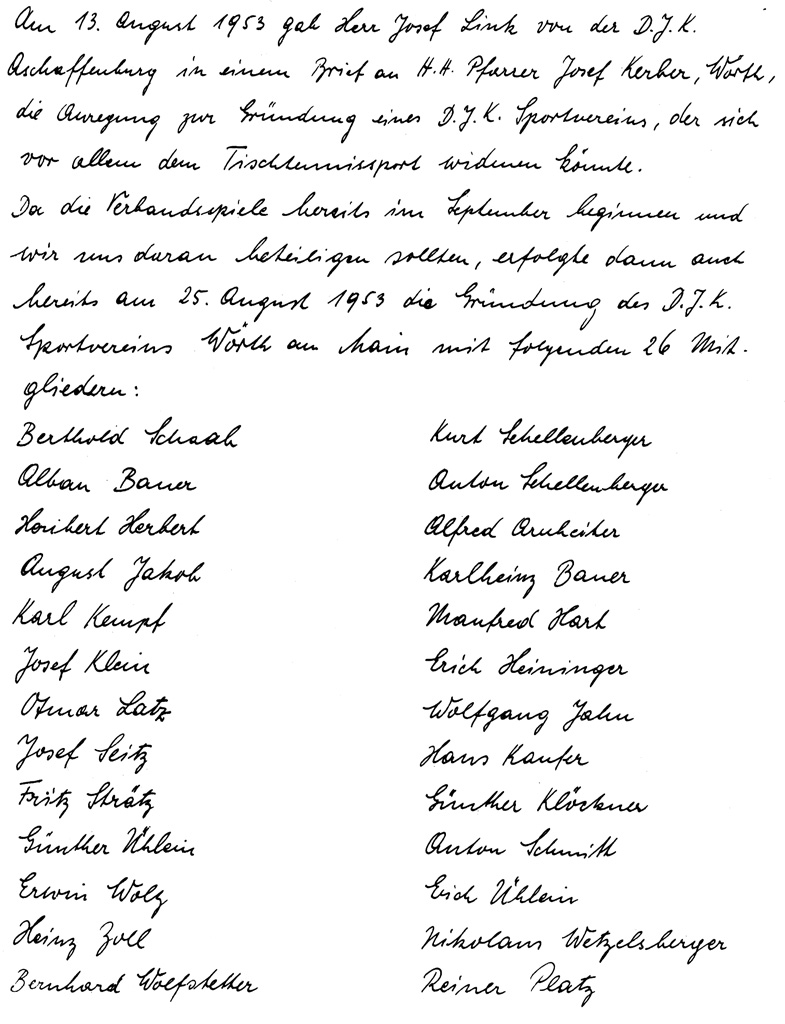 Am 13. August 1953 gab Herr Josef Link von der D.J.K.
Aschaffenburg in einem Brief an H.H. Pfarrer Josef Kerber, Wörth,
die Anregung zur Gründung eines D.J.K. Sportvereins, der sich
vor allem dem Tischtennissport widmen könnte.
Da die Verbandsspiele bereits im September beginnen und
wir uns daran beteiligen sollten, erfolgte dann auch
bereits am 25. August 1953 die Gründung des D.J.K.
Sportvereins Wörth am Main mit folgenden 26 Mit-
gliedern:
Berthold Schaab
Alban Bauer
Heribert Herbert
August Jakob
Karl Kempf
Josef Klein
Otmar Latz
Josef Seitz
Fritz Strätz
Günther Ühlein
Erwin Wolz
Heinz Zoll
Bernhard Wolfstetter
Kurt Schellenberger
Anton Schellenberger
Alfred Arnheiter
Karlheinz Bauer
Manfred Hart
Erich Heininger
Wolfgang Jahn
Hans Kaufer
Günther Klöckner
Anton Schmitt
Erich Ühlein
Nikolaus Wetzelsberger
Reiner Platz